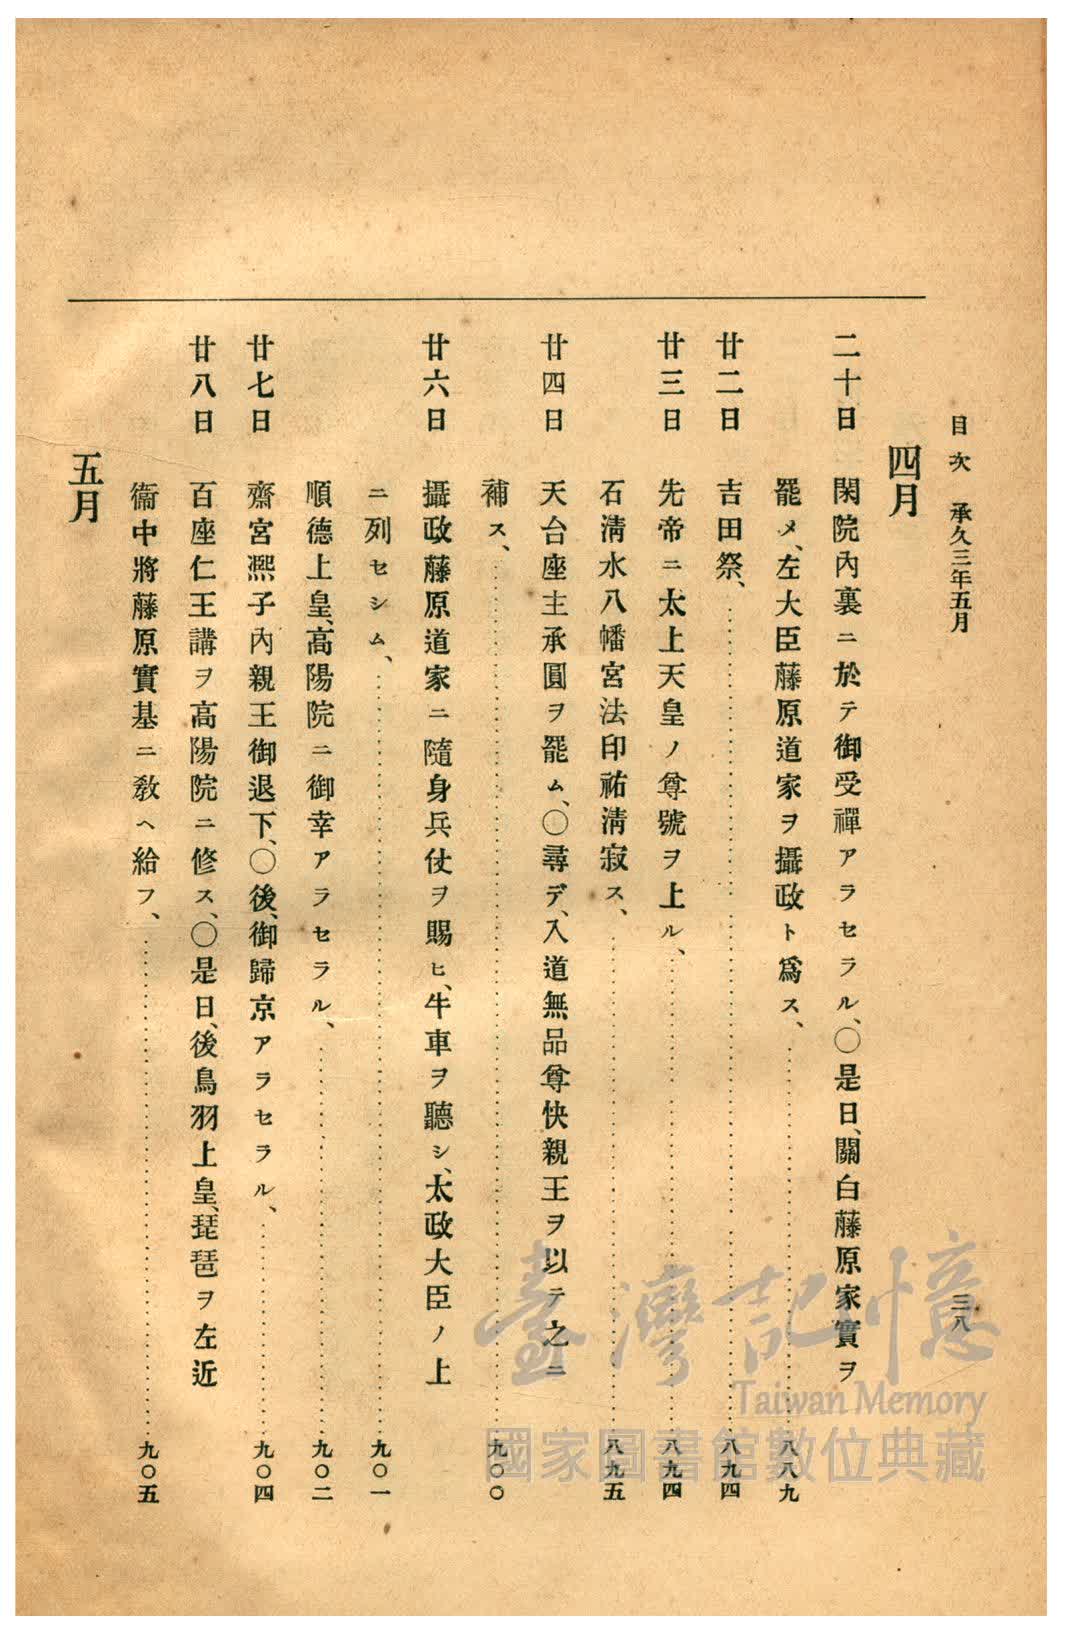 目次 承久三年五月 三八
四月
二十日 閑院內裏ニ於テ御受禪アラセラル、〇是日、關白藤原家實ヲ
罷メ、左大臣藤原道家ヲ攝政ト爲ス、……八八九
廿二日 吉田祭、……八九四
廿三日 先帝ニ太上天皇ノ尊號ヲ上ル、……八九四
石淸水八幡宮法印祐淸寂ス、……八九五
廿四日 天台座主承圓ヲ罷ム、〇尋デ、入道無品尊快親王ヲ以テ之ニ
補ス、……九〇〇
廿六日 攝政藤原道家ニ隨身兵仗ヲ賜ヒ、牛車ヲ聽シ、太政大臣ノ上
ニ列セシム、……九〇一
順德上皇、高陽院ニ御幸アラセラル、……九〇二
廿七日 齋宮凞子內親王御退下、〇後、御歸京アラセラル、……九〇四
廿八日 百座仁王講ヲ高陽院ニ修ス、〇是日、後鳥羽上皇、琵琶ヲ左近
衞中將藤原實基ニ敎ヘ給フ、……九〇五
五月
臺灣記憶
Taiwan Memory
國家圖書館數位典藏